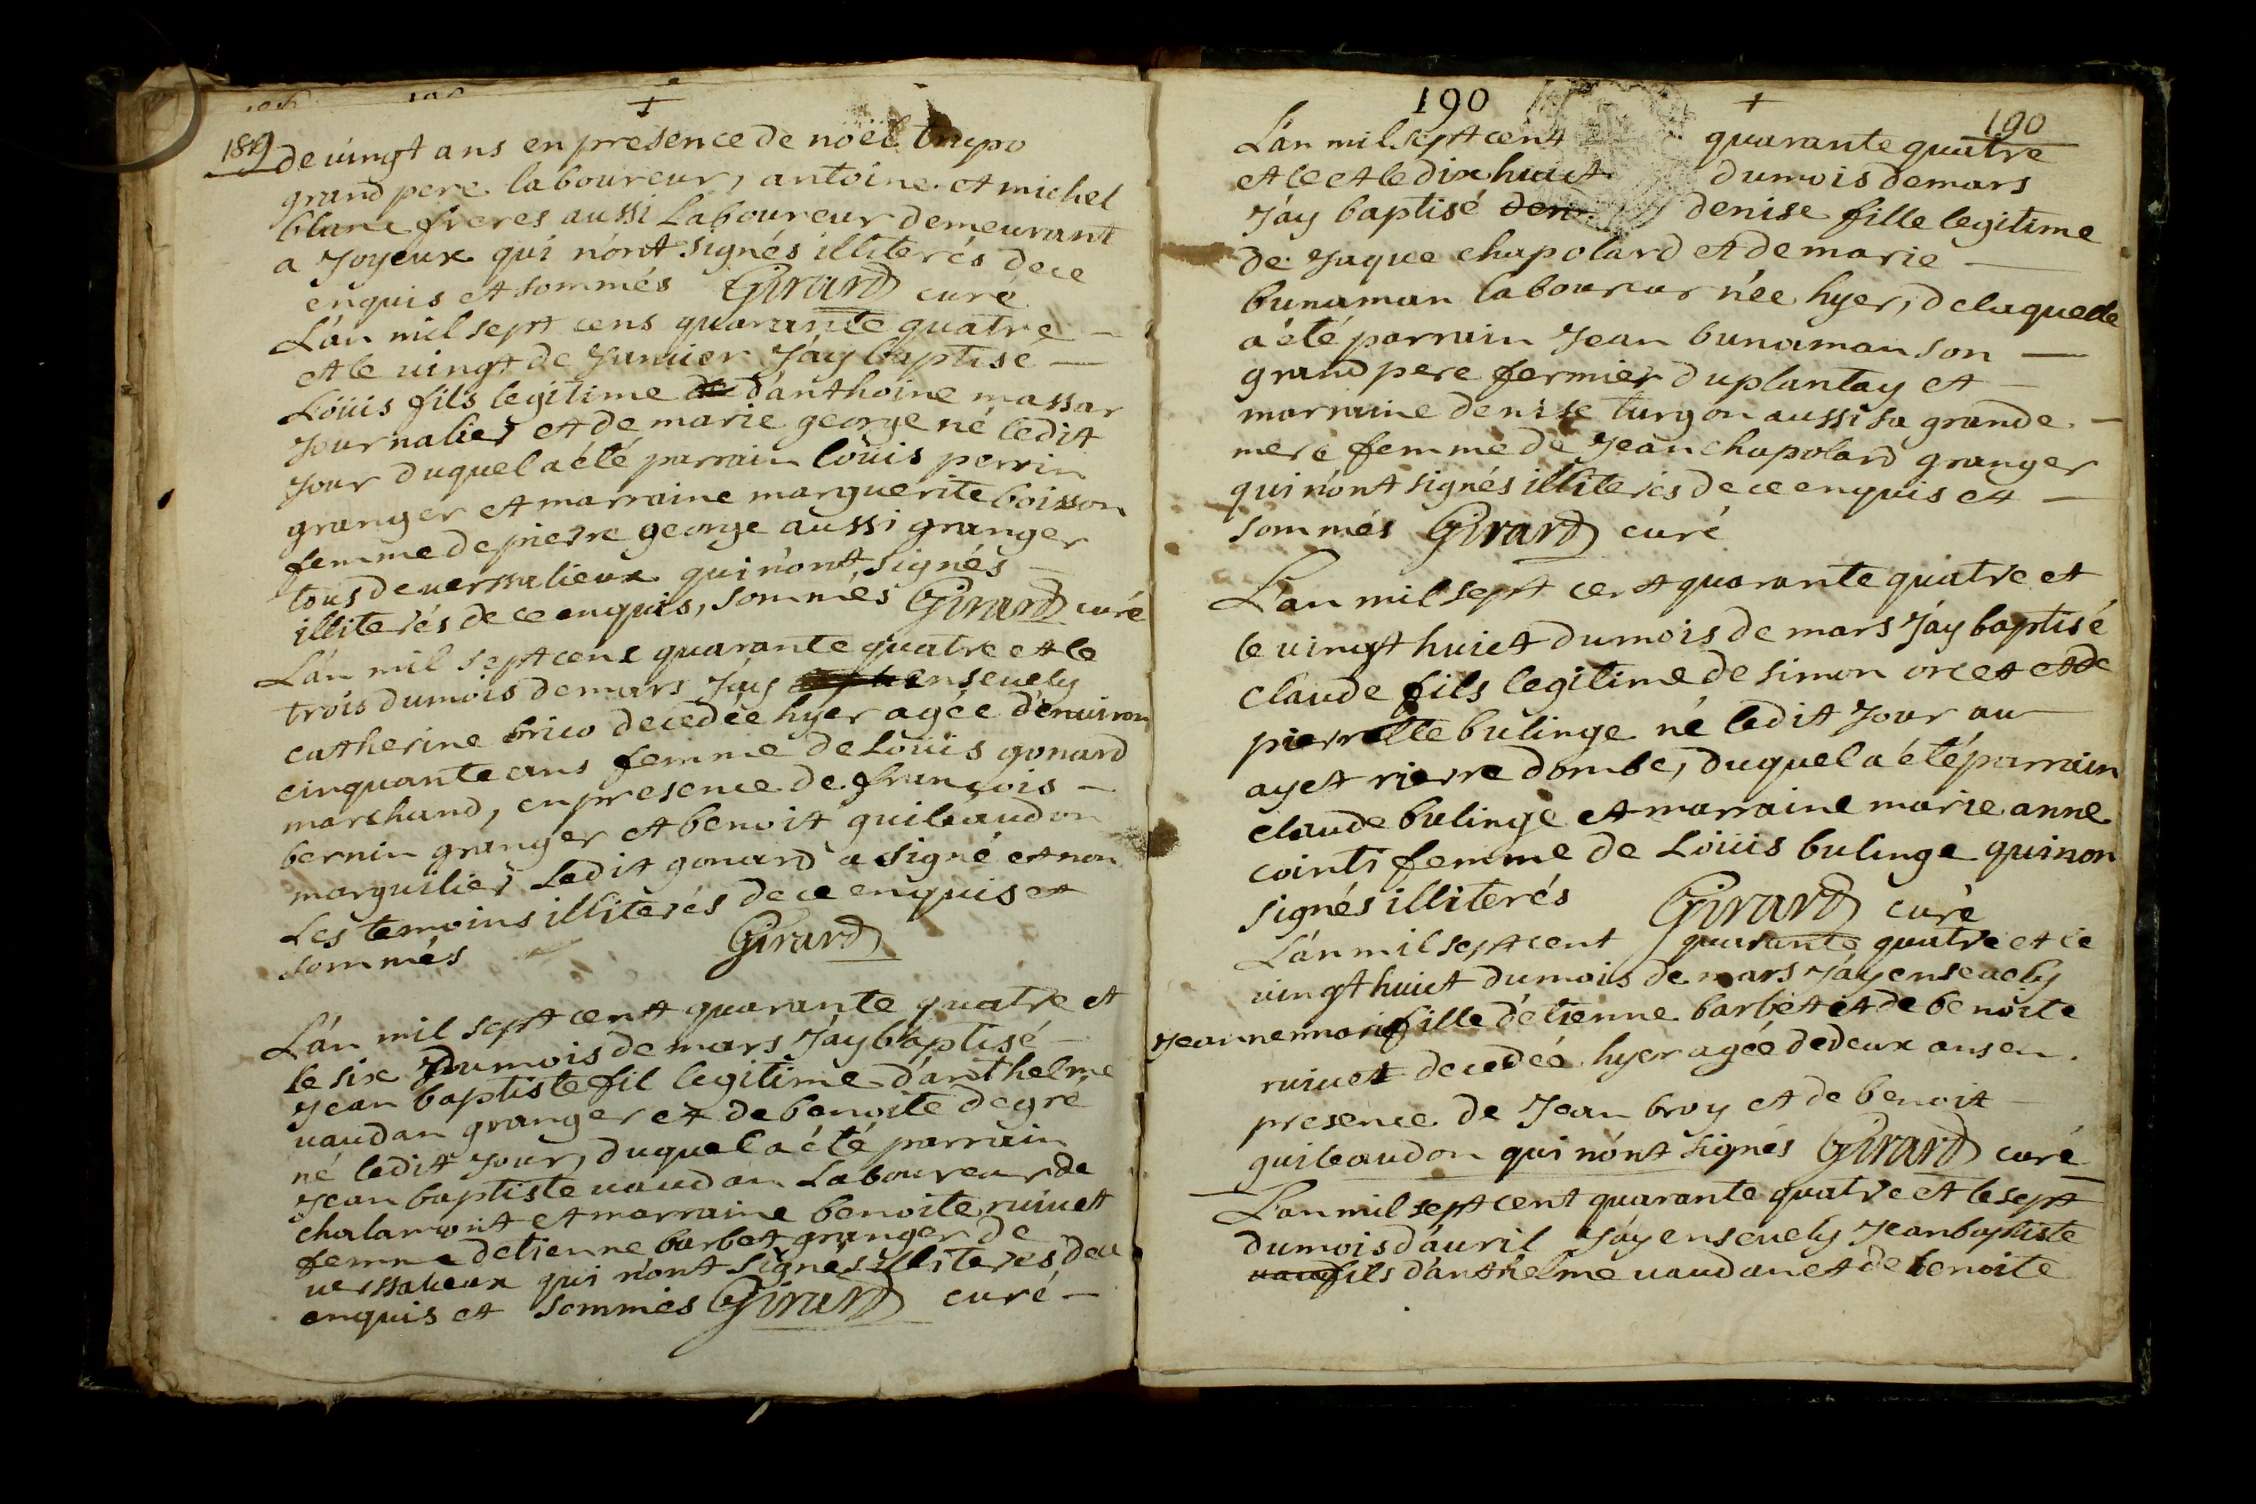 189
de vingt ans en presence de noël trupo
grand pere laboureur, antoine et michel
blanc freres aussi Laboureur demeurant
a Joyeux qui n'ont signés illiterés de ce
enquis et sommés Girard curé
L'an mil sept cens quarante quatre
et le vingt de Janvier J'ay baptisé
Loüis fils legitime d'anthoine massar
Journalier et de marie george né ledit
Jour duquel a été parrain loüis perrin
granger et marraine marguerite boisson
femme de pierre george aussi granger
tous de versalieux qui n'ont signés
illiterés de ce enquis, sommés Girard curé
L'an mil sept cens quarante quatre et le
trois du mois de mars J'ay ensevely
catherine brico decedée hyer agée d'environ
cinquante ans femme de Loüis gonard
marchand, en presence de françois
bernin granger et benoit guileaudon
marguilier Ledit gonard a signé et non
Les temoins illiterés de ce enquis et
sommés Girard
L'an mil sept cent quarante quatre et
le six Du mois de mars J'ay baptisé
Jean baptiste fil legitime d'anthelme
vaudan granger et de benoite degré
né ledit Jour, duquel a été parrain
Jean baptiste vaudan Laboureur de
chalamont et marraine benoite ruivet
femme d'etienne barbet granger de
versalieux qui n'ont signés illiteres de ce
enquis et sommés Girard curé
190
190
L'an mil sept cent quarante quatre
et le et le dix huict du mois de mars
J'ay baptisé den denise fille legitime
de Jaque chapolard et de marie
bunaman laboureur née hyer, de laquelle
a été parrain Jean bunaman son
grand pere fermier du plantay et
marraine denise turgon aussi sa grande
mere femme de Jean chapolard granger
qui n'ont signés illiterés de ce enquis et
sommés Girard curé
L'an mil sept cent quarante quatre et
le vingt huict du mois de mars J'ay baptisé
claude fils legitime de simon orcet et de
pierrette bulinge né ledit Jour au
ayet rierre dombe, duquel a été parrain
claude bulinge et marraine marie anne
cointi femme de Loüis bulinge qui non
signés illiterés Girard curé
L'an mil sept cent quarante quatre et le
vingt huict du mois de mars J'ay ensevely
Jeanne marie fille d'etienne barbet et de benoite
ruivet decedée hyer agée de deux ans en
presence de Jean broy et de benoit
guileaudon qui n'ont signés Girard curé
L'an mil sept cent quarante quatre et le sept
du mois d'avril J'ay ensevely Jean baptiste
vau fils d'anthelme vaudan et de benoite